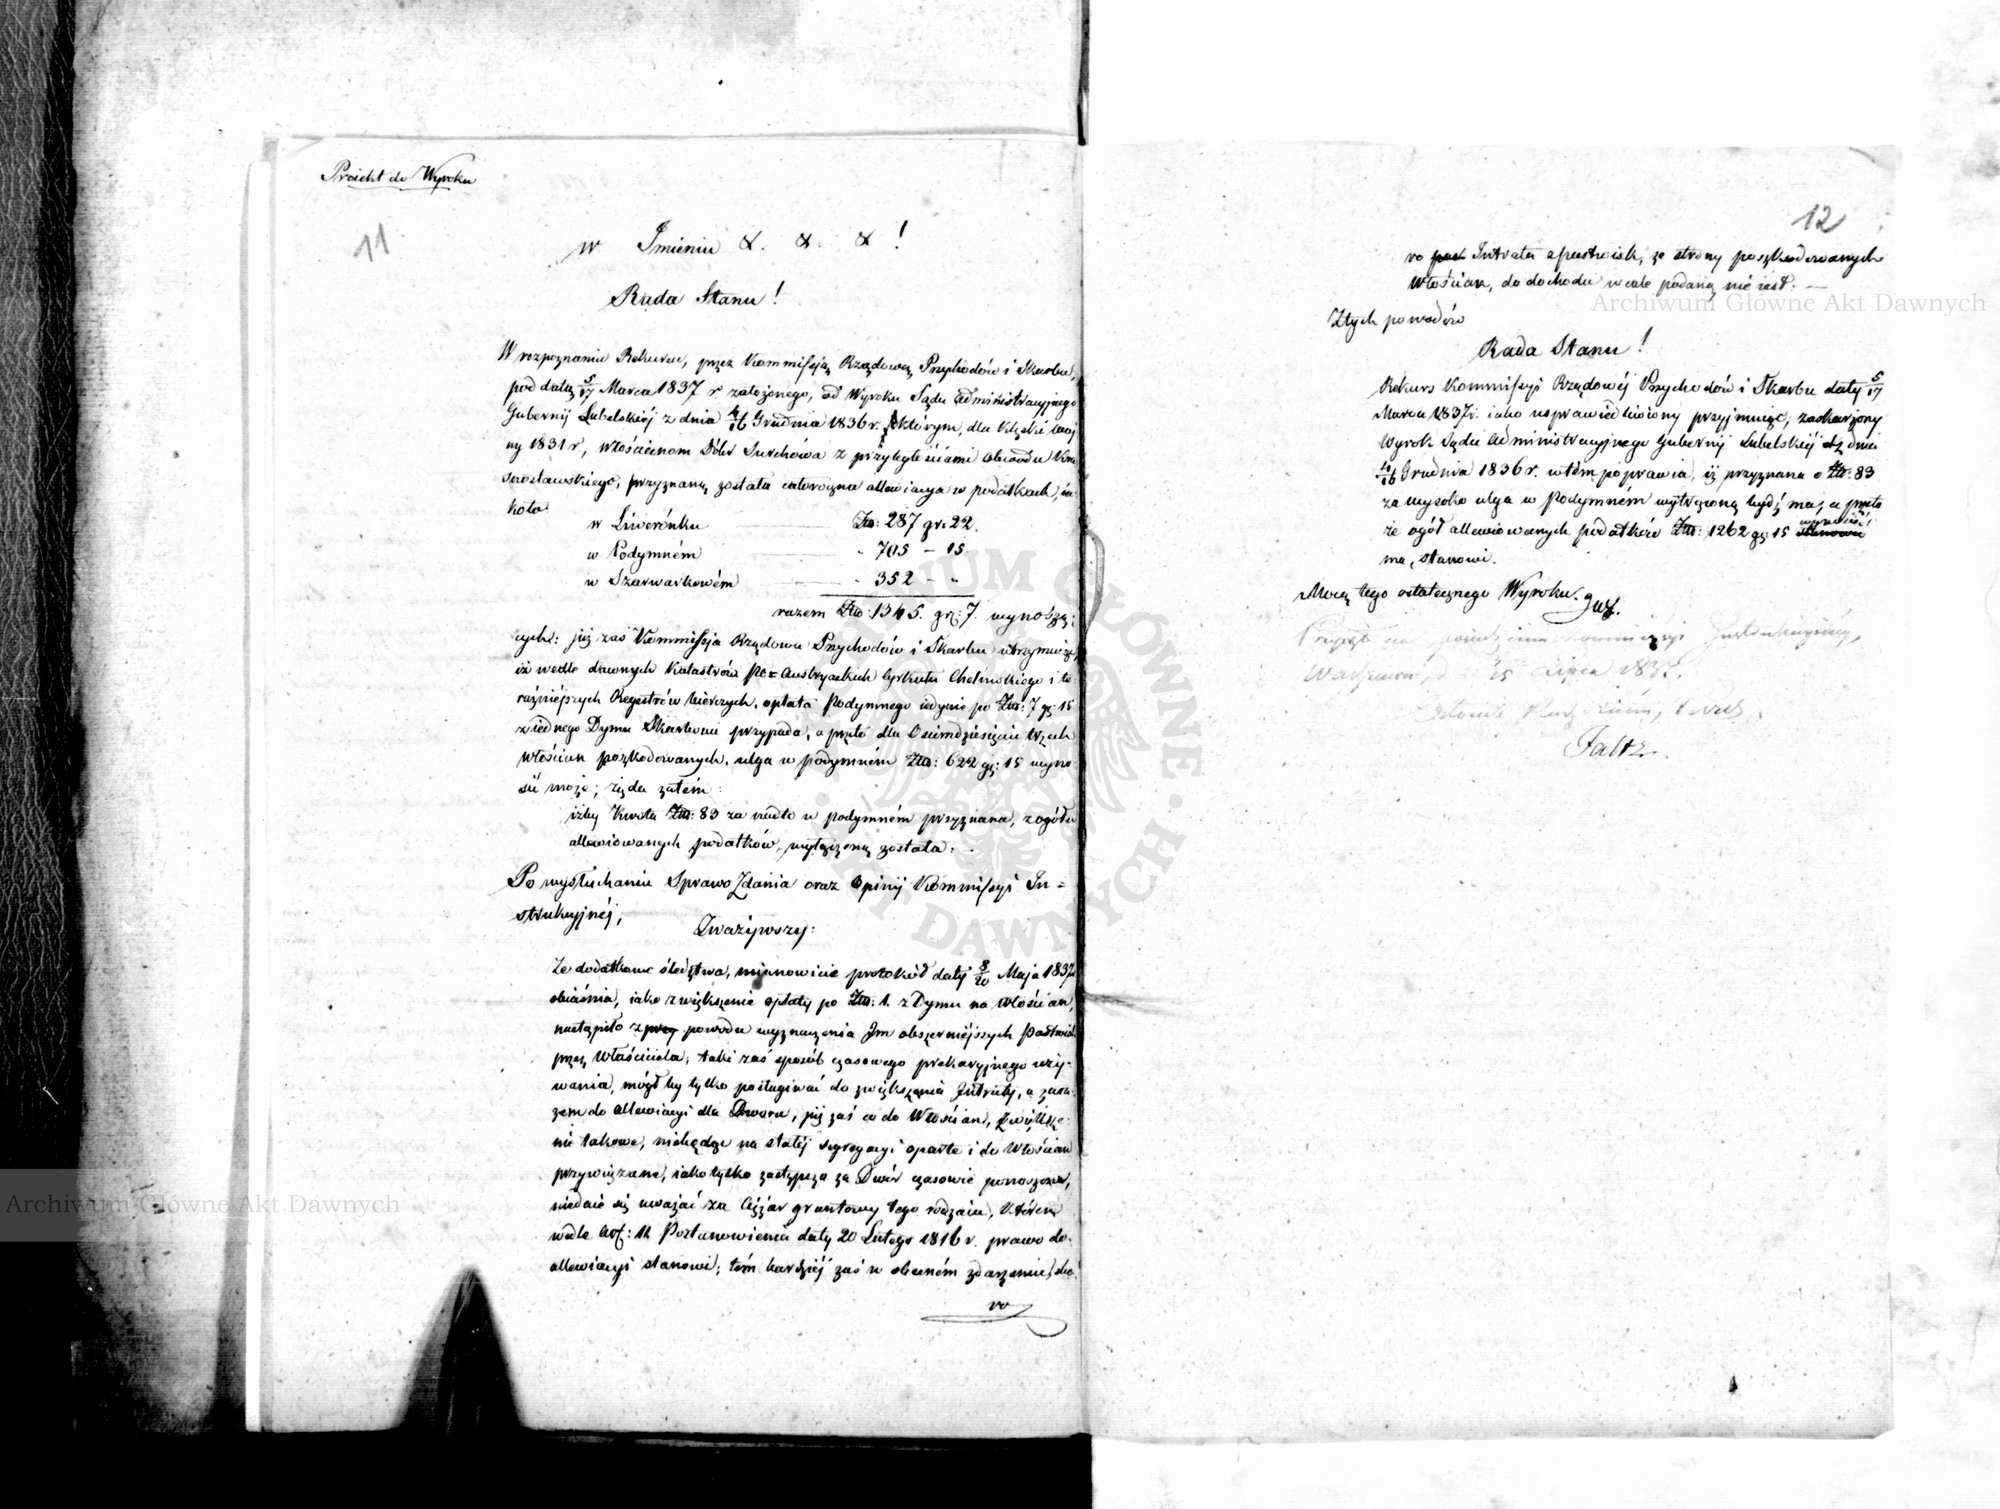 Proiekt do Wyroku
11
w Imieniu &. &. &!
Rada Stanu!
W rozpoznaniu Rekursu, przez Kommissyą Rządową Przychodów i Skarbu,
pod datą 5/17 Marca 1837 r założonego, od Wyroku Sądu Administracyjnego
Gubernij Lubelskiéj z dnia 4/16 Grudnia 1836 r. którym, dla klęski woj
ny 1831 r, włościanom Dóbr Surchowa z przyległościami Obwodu Kra
snostawskiego, przyznaną została całoroczna allewiacya w podatkach, ia
koto
w Liwerónku Złp: 287 gr: 22.
w Podymném " 705 – 15.
w Szarwarkowém " 352 – "
razem Złp: 1345. gr: 7. wynoszą;
cych: już zaś Kommissja Rządowa Przychodów i Skarbu utrzymuiąc,
iż wedle dawnych Katastrów po=Austryackich Cyrkułu Chełmskiego i te
raźniejszych Registrów bierczych, opłata Podymnego iedynie po Złp: 7 gr: 15
z iednego Dymu Skarbowi przypada, a przeto dla Osiemdziesięciu trzech
włościan poszkodowanych, ulga w podymném Złp: 622 gr: 15 wyno
sić może; żąda zatém:
iżby kwota Złp: 83 za nadto w podymném przyznana, z ogółu
allewiowanych podatków, wyłączoną została. –
Po wysłuchaniu SprawoZdania oraz Opinij Kommissyi In=
strukcyjnéj,
Zważywszy:
Że dodatkowe śledztwa, mianowicie protokół daty 8/20 Maja 1837
obiaśnia, iako zwiększenie opłaty po Złp: 1. z Dymu na Włościan,
nastąpiło z przy powodu wyznaczenia Im obszerniéjszych Pastwisk
przez Właściciela, taki zaś sposób czasowego prekaryjnego uży-
wania, mógł by tylko posługiwać do zwiększenia Intraty, a zara-
zem do allewiacyi dla Dworu, już zaś co do Włościan, zwiększe-
nie takowe, niebędąc na stałéj segregacyi oparte i do Włościan
przywiązane, iako tylko zastępczo za Dwór czasowie ponoszone,
niedaie się uważać za Ciężar gruntowy tego rodzaiu, któren
wedle Art: 11 Postanowienia daty 20 Lutego 1816 r. prawo do
allewiacyi stanowi; tém bardziéj zaś w obecném zdarzeniu, sko-
ro
12
ro Intrata z pastwisk, ze strony poszkodowanych
Włościan, do dochodu wcale podaną nie iest. –
Z tych powodów
Rada Stanu!
Rekurs Kommissyi Rządowéj Przychodów i Skarbu daty 5/17
Marca 1837 r. iako usprawiedliwiony przyjmuiąc, zaskarżony
Wyrok Sądu Administracyjnego Gubernij Lubelskiéj z dnia
4/16 Grudnia 1836 r. w tém poprawia, iż przyznana o Złp: 83
za wysoko ulga w Podymném wytrąconą bydź ma, a przeto
że ogół allewiowanych podatków Złp: 1262 gr: 15 wynosić
ma, stanowi.
Mocą tego ostatecznego Wyroku.
Przyjęto na posiedzeniu Kommissyi Instrukcyjnéj,
Warszawa, d. 15 Lipca 1837.
Faltz.